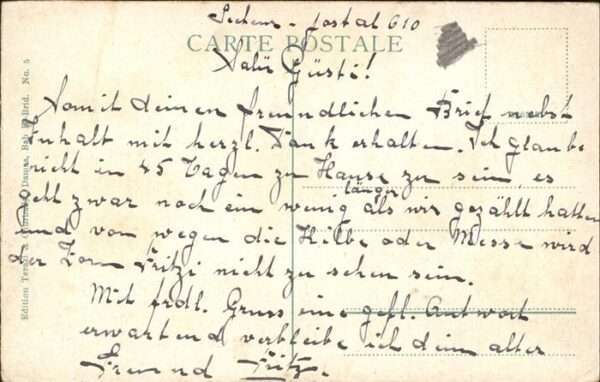 postal 610
CARTE POSTALE
Salü Güsti!
Somit deinen freundlichen Brief nebst
Inhalt mit herzl. Dank erhalten. Ich glaube
nicht in 45 Tagen zu Hause zu sein, es
länger
geht zwar noch ein wenig als wir gezählt hatten
und von wegen die oder Messe wird
der Fritzi nicht zu sehen sein.
Mit frdl. Gruss eine gefl. Antwort
erwartend verbleibe ich dein alter
Freund Fritz.
Edition Damas, Bab No. 5